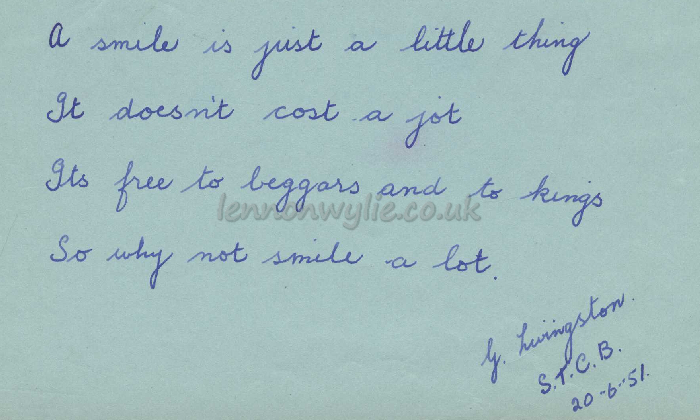 A smile is just a little thing
It doesn't cost a jot
Its free to beggars and to kings
lennonwylie.co.uk
So why not smile a lot.
G. Livingston.
S.T.C.B.
20-6-51.